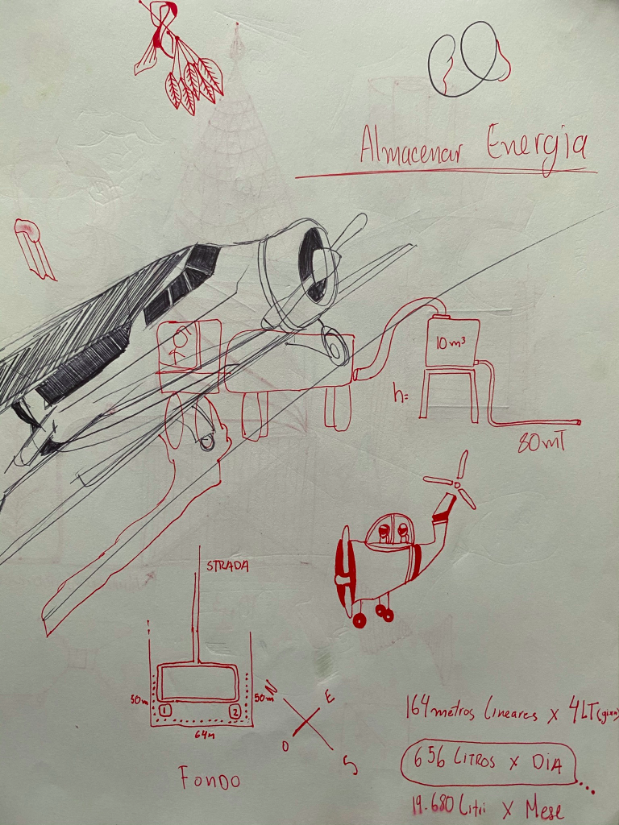 Almacenar Energia
10 m³
h=
80 mT
STRADA
50m
50m
1
2
64m
N
E
O
S
FONDO
164 metros lineares x 4LT(giorno)
656 LITROS x DIA
19.680 litri x Mese